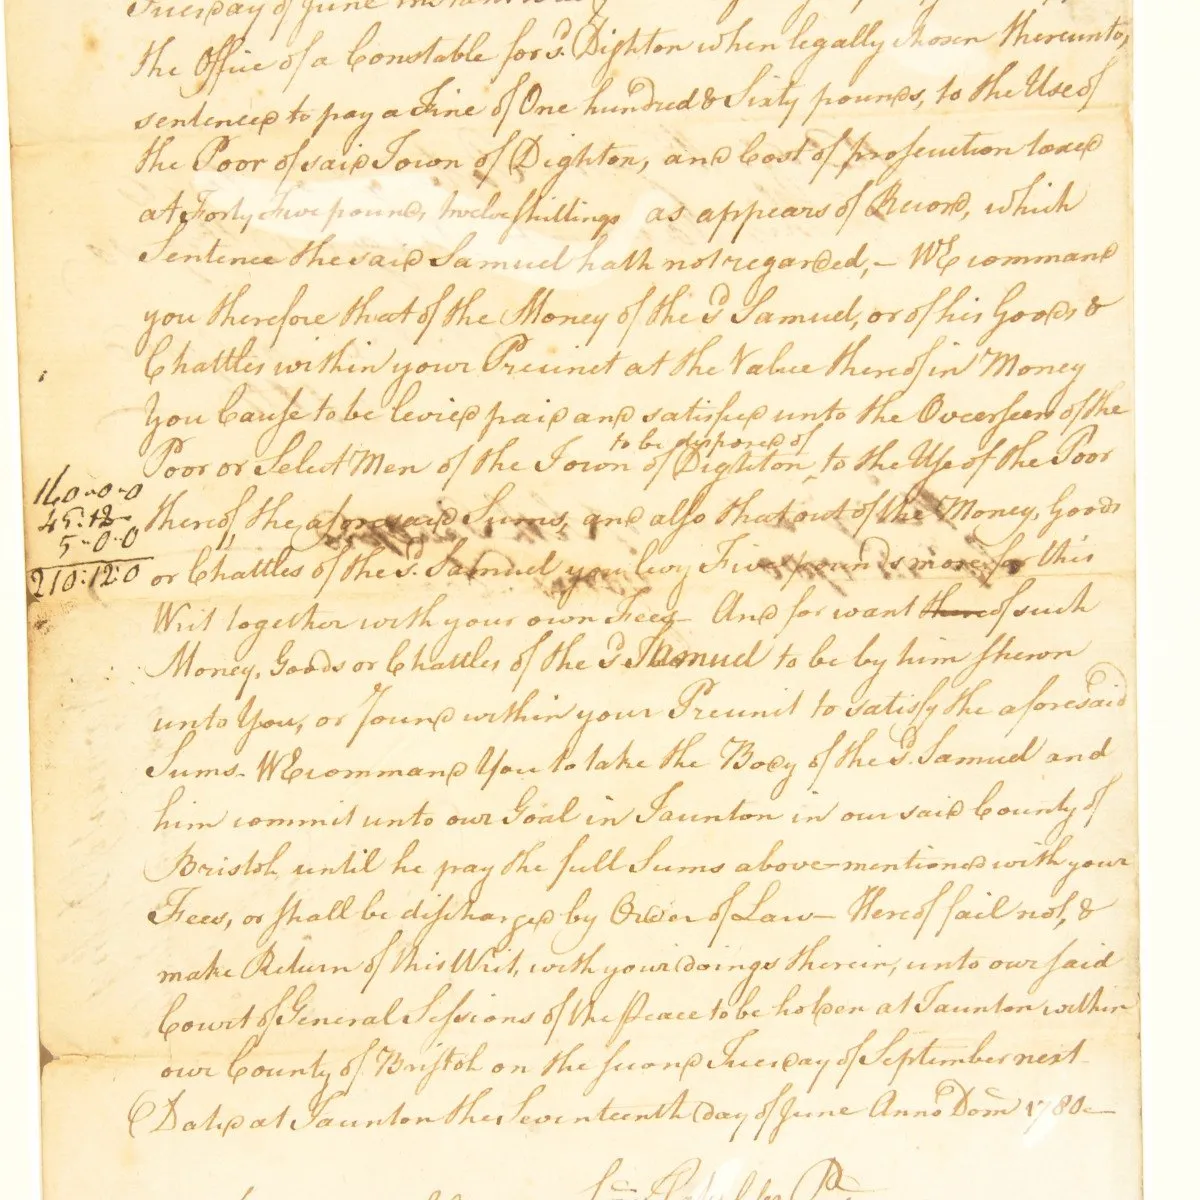 Tuesday of June instant
the Office of a Constable for sd. Dighton when legally chosen thereunto,
sentenced to pay a Fine of One hundred & Sixty pounds, to the Use of
the Poor of said Town of Dighton, and Cost of prosecution taxed
at Forty Five pounds, twelve shillings as appears of Record, which
Sentence the said Samuel hath not regarded,— WE command
you therefore that of the Money of the sd Samuel, or of his Goods &
Chattles within your Precinct at the Value thereof in Money
You Cause to be levied paid and satisfied unto the Overseers of the
to be disposed of
Poor or Select Men of the Town of Dighton ‸ to the Use of the Poor
160-0-0
45-12-
5-0-0
210:12:0
thereof, the aforesaid Sums, and also that out of the Money, Goods
or Chattles of the sd. Samuel you levy Five pounds more for this
Writ together with your own Fees— And for want thereof such
Money, Goods or Chattles of the sd Samuel to be by him shewn
unto You, or found within your Precinct to satisfy the aforesaid
Sums- WE command You to take the Body of the sd. Samuel and
him commit unto our Goal in Taunton in our said County of
Bristol, until he pay the full Sums above-mentioned with your
Fees, or shall be discharged by Order of Law— Hereof fail not, &
make Return of this Writ, with your doings therein, unto our said
Court of General Sessions of the Peace to be holden at Taunton within
our County of Bristol on the second Tuesday of September next
Dated at Taunton the Seventeenth day of June Anno Dom 1780—